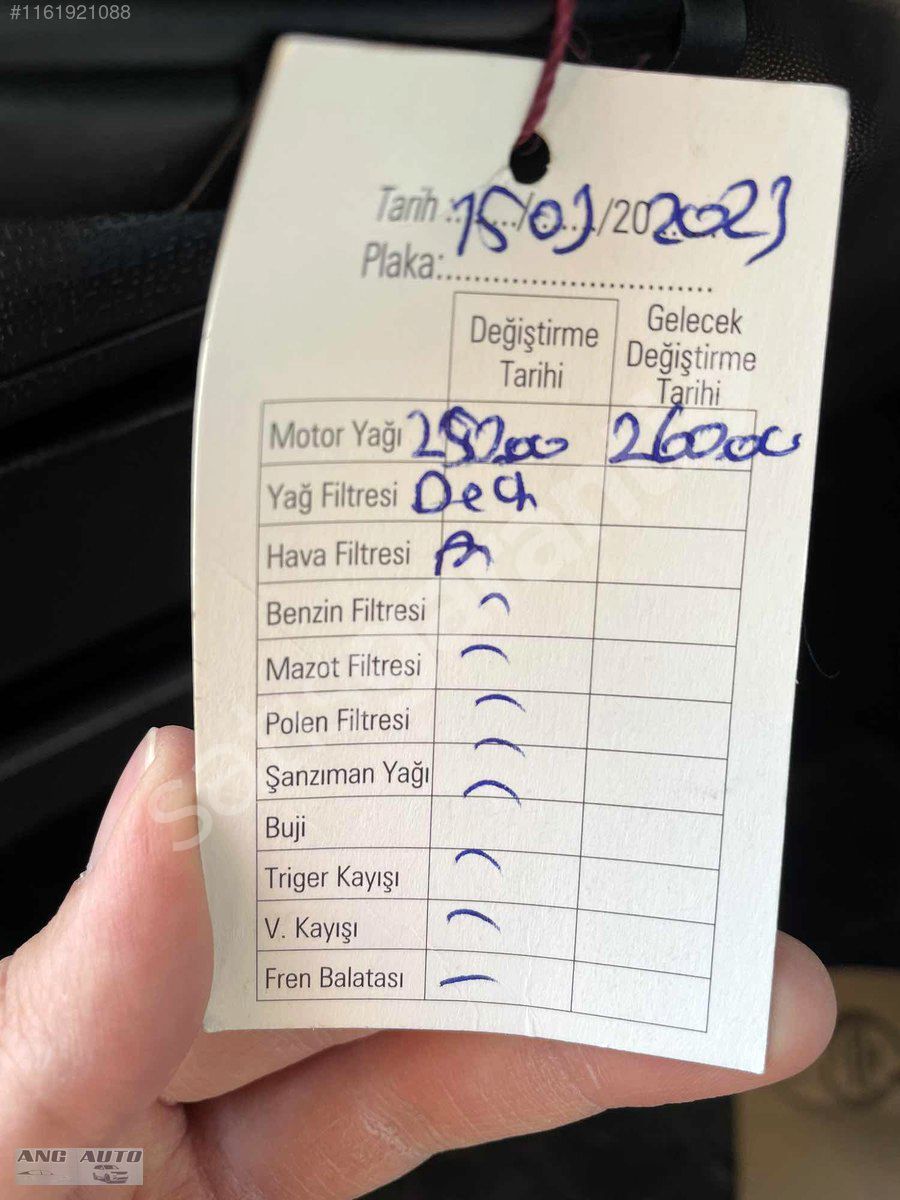 #1161921088
Tarih : 15/03/20 2023
Plaka:
Değiştirme Tarihi
Gelecek Değiştirme Tarihi
Motor Yağı 26000
Yağ Filtresi
Hava Filtresi
Benzin Filtresi
Mazot Filtresi
Polen Filtresi
Şanzıman Yağı
Buji
Triger Kayışı
V. Kayışı
Fren Balatası
ANG AUTO